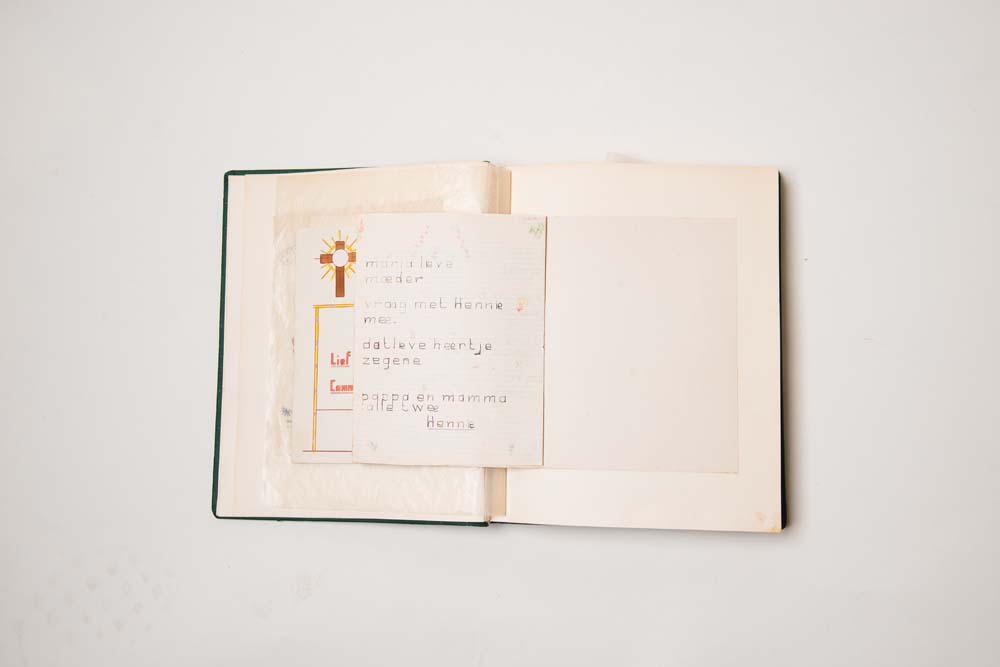 Lief
Comm
maria leve
mœder
vraag met Hennie
mee.
dat leve heertje
zegene
pappa en mamma
alle twee
Hennie